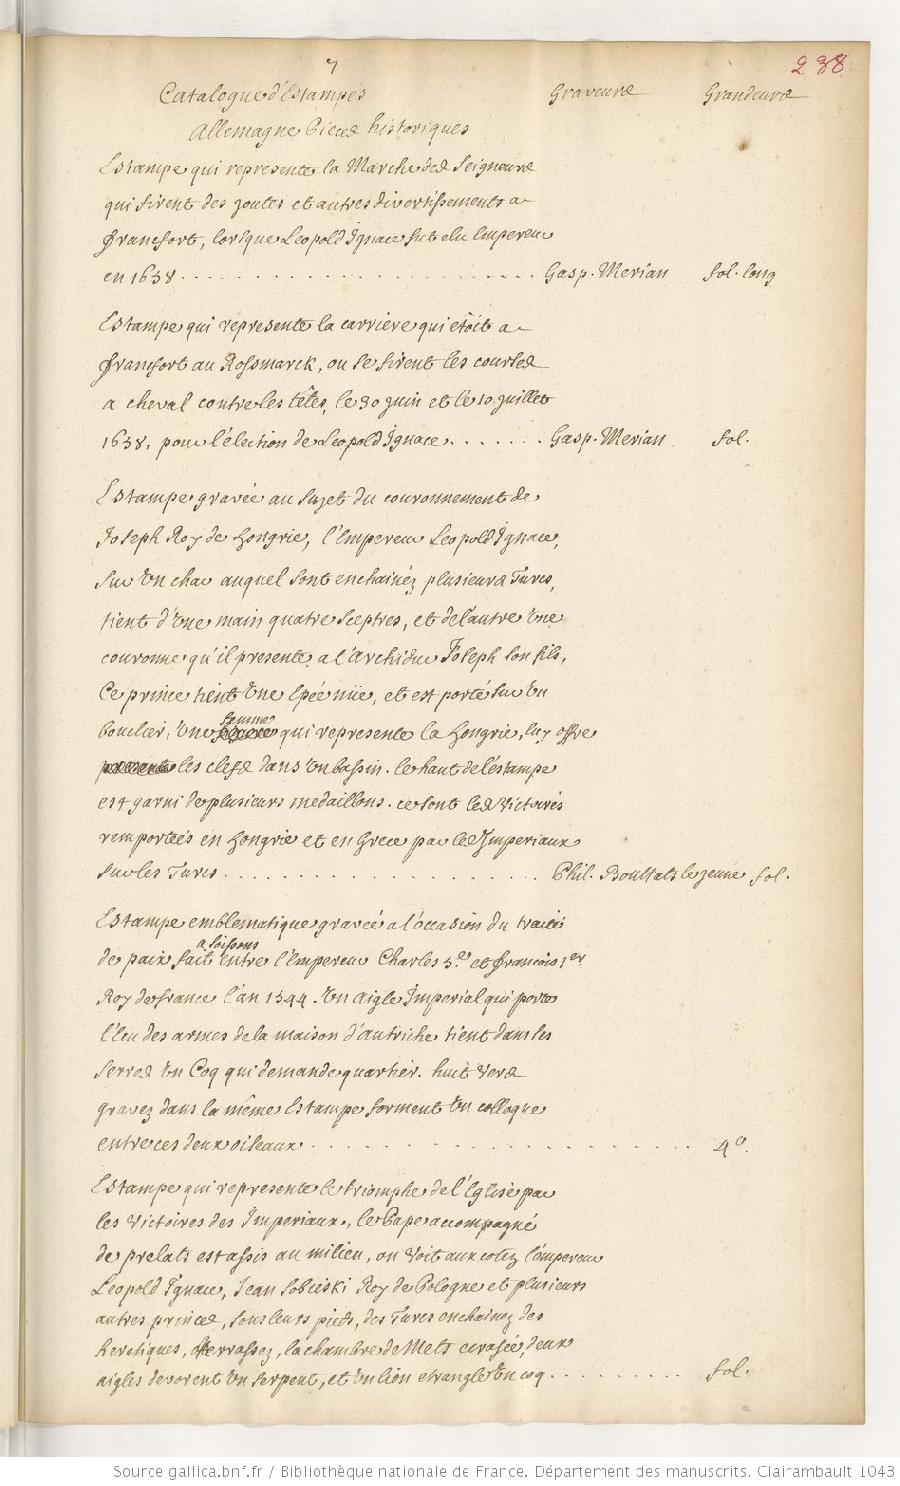 7
238
Catalogue d'Estampes Graveurs Grandeurs
Allemagne Pieces historiques
Estampe qui represente la Marche des Seigneurs
qui firent des joutes et autres divertissements a
francfort, lorsque Leopold Ignace fut elu Empereur
en 1658 . . . . . . . . . . . . . . . . . . . . . . . Gasp. Merian fol. long
Estampe qui represente la carriere qui étoit a
francfort au Rossmarck, ou se firent les courses
a cheval contre les têtes, le 30 juin et le 10 juillet
1658, pour l'élection de Leopold Ignace . . . . . . . Gasp. Merian fol.
Estampe gravée au sujet du couronnement de
Joseph Roy de Hongrie, l'Empereur Leopold Ignace,
sur un char auquel sont enchainéz plusieurs Turcs,
tient d'une main quatre sceptres, et de l'autre une
couronne qu'il presente a l'Archiduc Joseph son fils,
Ce prince tient une Epée nüe, et est porté sur un
bouclier, une femme qui represente la Hongrie, luy offre
les clefs dans un bassin. le haut de l'éstampe
est garni de plusieurs medaillons. ce sont les Victoires
remportées en Hongrie et en Grece par les Imperiaux
sur les Turcs . . . . . . . . . . . . . . . . . . Phil. Bouttats le jeune fol.
Estampe emblematique gravée a l'occasion du traité
de paix fait a Soissons entre l'Empereur Charles 5.e et francois 1er
Roy de france l'an 1544. Un Aigle Imperial qui porte
l'Ecu des armes de la maison d'autriche tient dans les
serres un Coq qui demande quartier. huit Vers
gravez dans la même Estampe forment un colloque
entre ces deux oiseaux . . . . . . . . . . . . . . . . . . 4o.
Estampe qui represente le triomphe de l'Eglise par
les Victoires des Imperiaux, le Pape accompagné
de prelats est assis au milieu, on voit aux cotez l'empereur
Leopold Ignace, Jean Sobieski Roy de Pologne et plusieurs
autres princes, sous leurs pieds, des Turcs enchainez des
heretiques, terrassez, la chambre de Mets ecrasée, deux
aigles devorent un serpent, et un lion etrangle un coq . . . . . . . . . . fol.
Source gallica.bnf.fr / Bibliothèque nationale de France. Département des manuscrits. Clairambault 1043